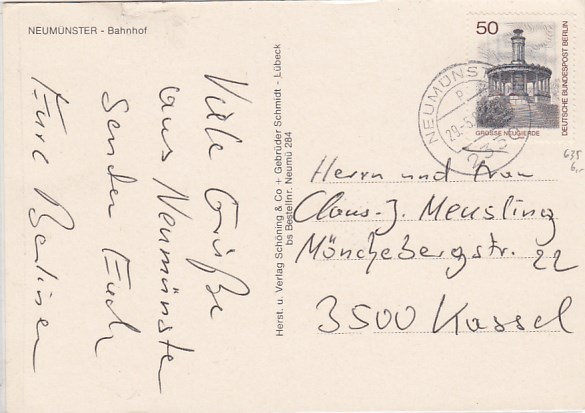 NEUMÜNSTER - Bahnhof
Viele Grüße
aus Neumünster
senden Euch
Eure Berliner
Herst. u. Verlag Schöning & Co + Gebrüder Schmidt - Lübeck
bs Bestellnr. Neumü 284
50
DEUTSCHE BUNDESPOST BERLIN
GROSSE NEUGIERDE
NEUMÜNS
29.-5.
235
635
6,-
Herrn und Frau
Claus-J. Meusling
Mönchebergstr. 22
3500 Kassel